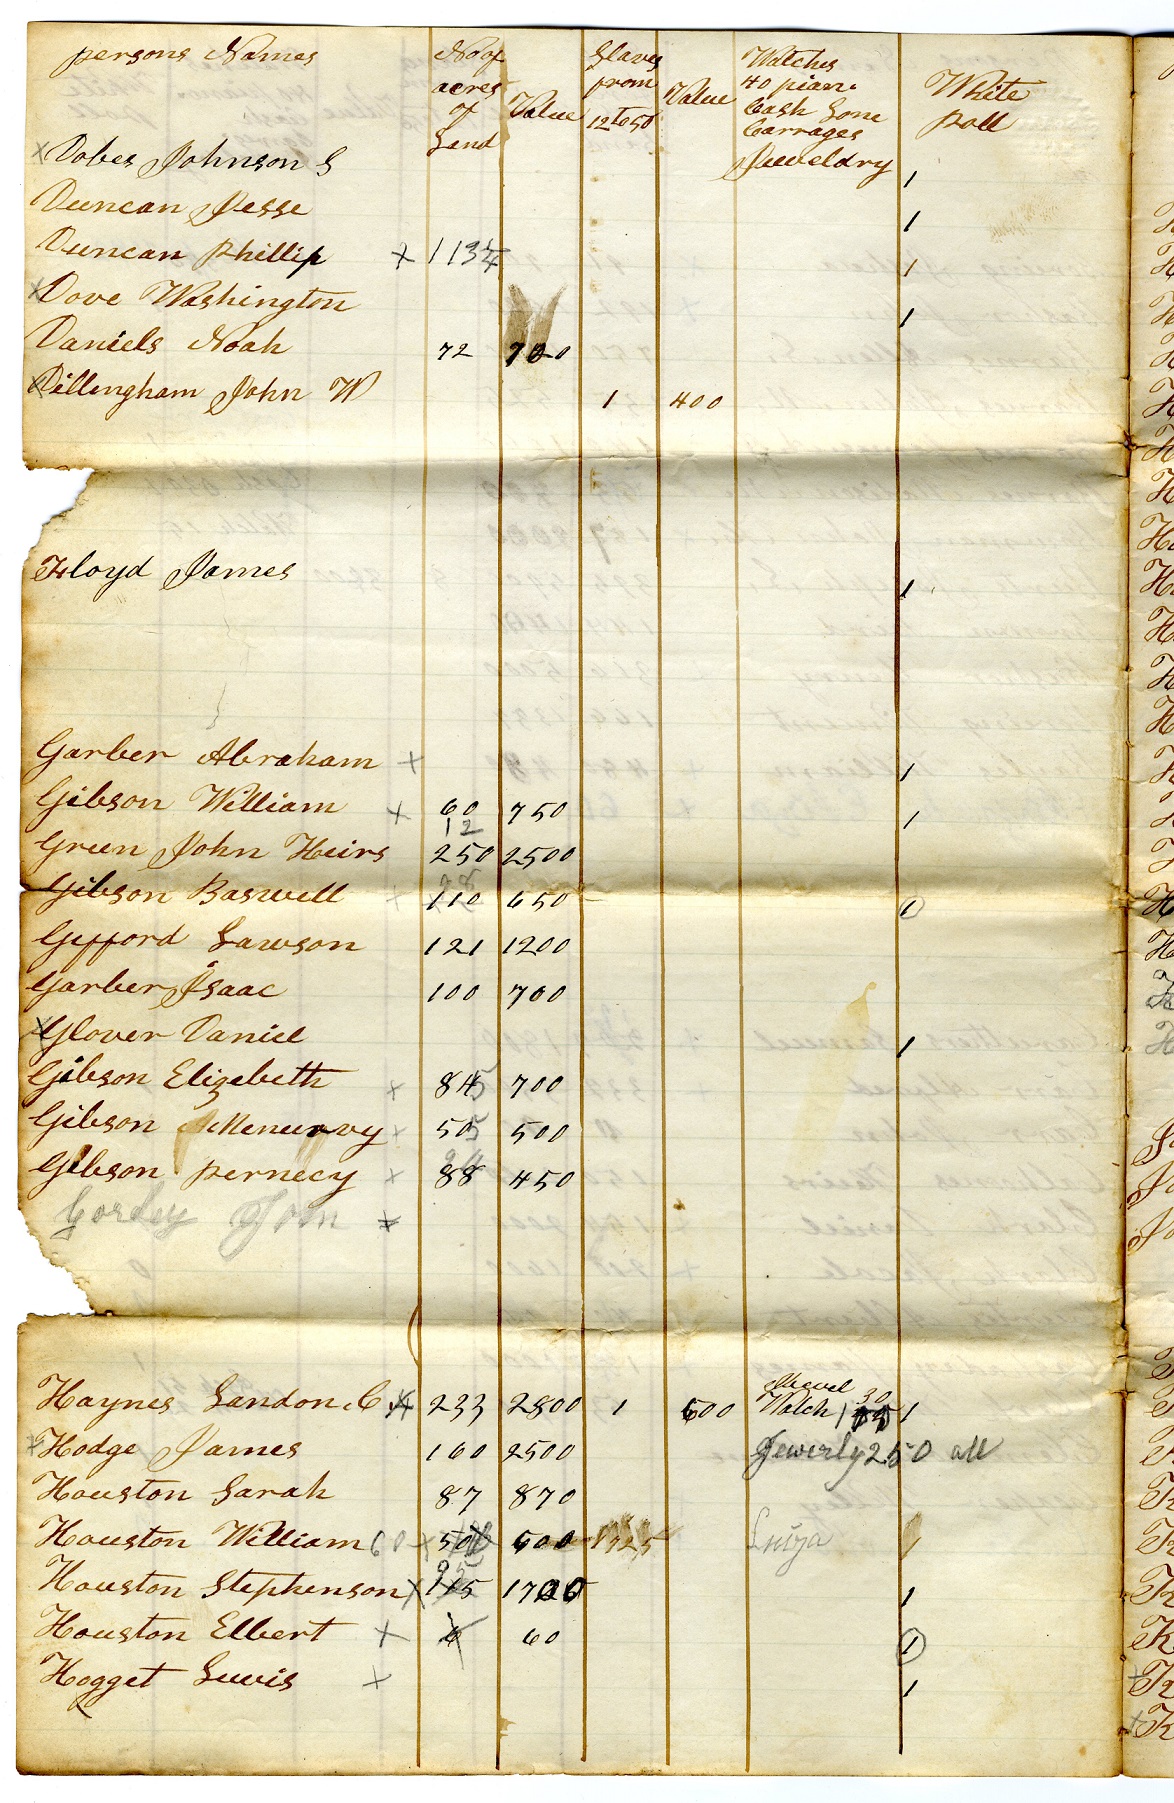 persons Names No of acres of Land Value Slaves from 12 to 50 Value Watches piano Cash Some Carrages Jeweldry White poll
x Dobes Johnson S 1
Duncan Jesse 1
Duncan Phillip x 113 1/4 1
x Dove Washington 1
Daniels Noah 72 720
x Dillingham John W 1 400
Floyd James 1
Garber Abraham x 1
Gibson William x 60 750 1
12
Green John Heirs 250 2500
Gibson Baswell x 110 650 1
Gifford Lawson 121 1200
Garber Isaac 100 700
x Glover Daniel 1
Gibson Elizebeth x 845 700
Gibson Menurvy x 50 500
Gibson pernecy x 88 450
John x
Haynes Landon C x 233 2800 1 600 Watch 30 1
x Hodge James 160 2500 Jewerly 250 all
Houston Sarah 87 870
Houston William 60 x 50 600 1
Houston Stephenson x 1700 1
Houston Elbert x 6 60 1
Hogget Lewis x 1